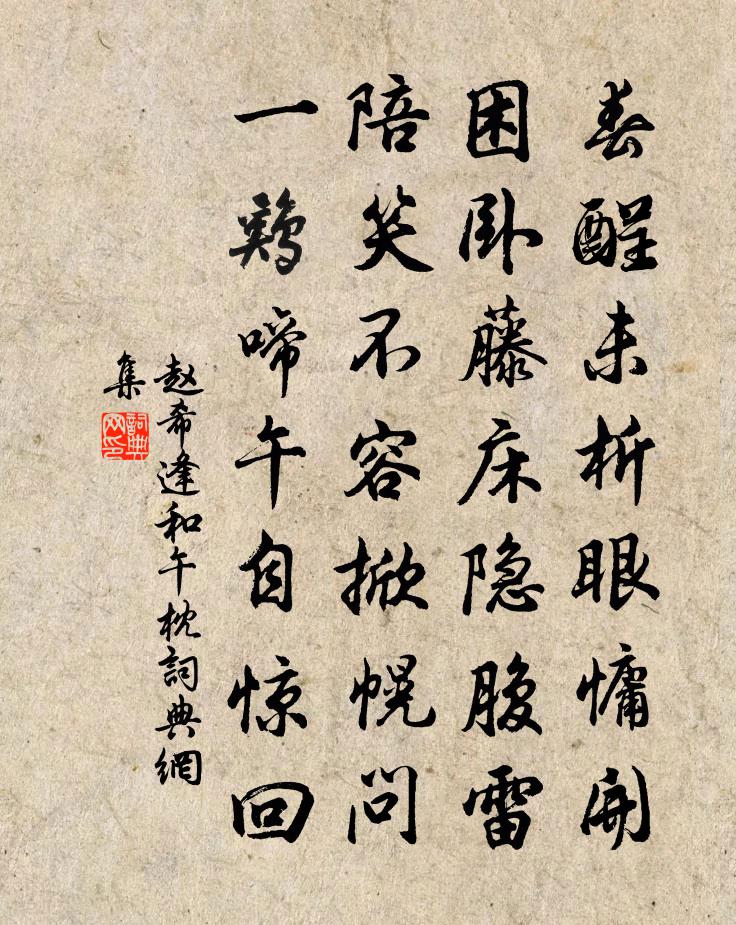 春酲未析眼慵開
困卧藤床隐腹雷
陪笑不容掀幌问
一鷄啼午自惊回
赵希逢和午枕詞典網
集
詞典
网印